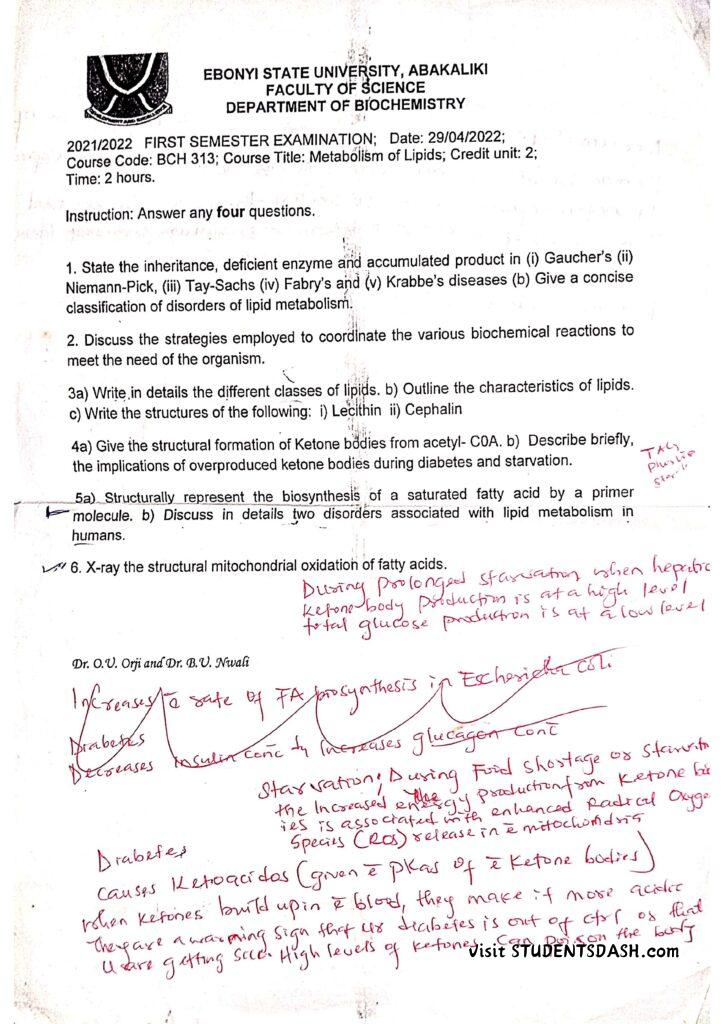 EBONYI STATE UNIVERSITY, ABAKALIKI
FACULTY OF SCIENCE
DEPARTMENT OF BIOCHEMISTRY
2021/2022 FIRST SEMESTER EXAMINATION; Date: 29/04/2022;
Course Code: BCH 313; Course Title: Metabolism of Lipids; Credit unit: 2;
Time: 2 hours.
Instruction: Answer any four questions.
1. State the inheritance, deficient enzyme and accumulated product in (i) Gaucher's (ii)
Niemann-Pick, (iii) Tay-Sachs (iv) Fabry's and (v) Krabbe's diseases (b) Give a concise
classification of disorders of lipid metabolism.
2. Discuss the strategies employed to coordinate the various biochemical reactions to
meet the need of the organism.
3a) Write in details the different classes of lipids. b) Outline the characteristics of lipids.
c) Write the structures of the following: i) Lecithin ii) Cephalin
4a) Give the structural formation of Ketone bodies from acetyl- C0A. b) Describe briefly,
the implications of overproduced ketone bodies during diabetes and starvation.
5a) Structurally represent the biosynthesis of a saturated fatty acid by a primer
molecule. b) Discuss in details two disorders associated with lipid metabolism in
humans.
6. X-ray the structural mitochondrial oxidation of fatty acids.
During prolonged starvation when hepatic
Ketone body production is at a high level
total glucose production is at a low level
Dr. O.U. Orji and Dr. B.U. Nwali
Increases rate of FA biosynthesis in Escherichia coli.
Diabetes
Decreases insulin conc Increases glucagon conc
Starvation; During Food shortage or
the Increased energy production from Ketone
ies is associated with enhanced Radical Oxyge
Species (ROS) release in mitochondria
Diabetes
causes Ketoacidos (given pKas of Ketone bodies)
when ketones build up in blood, they make it more acidic
They are a warming sign that ur diabetes is out of ctrl or that
u are getting sick. High levels of ketones can poison the body
visit STUDENTSDASH.com